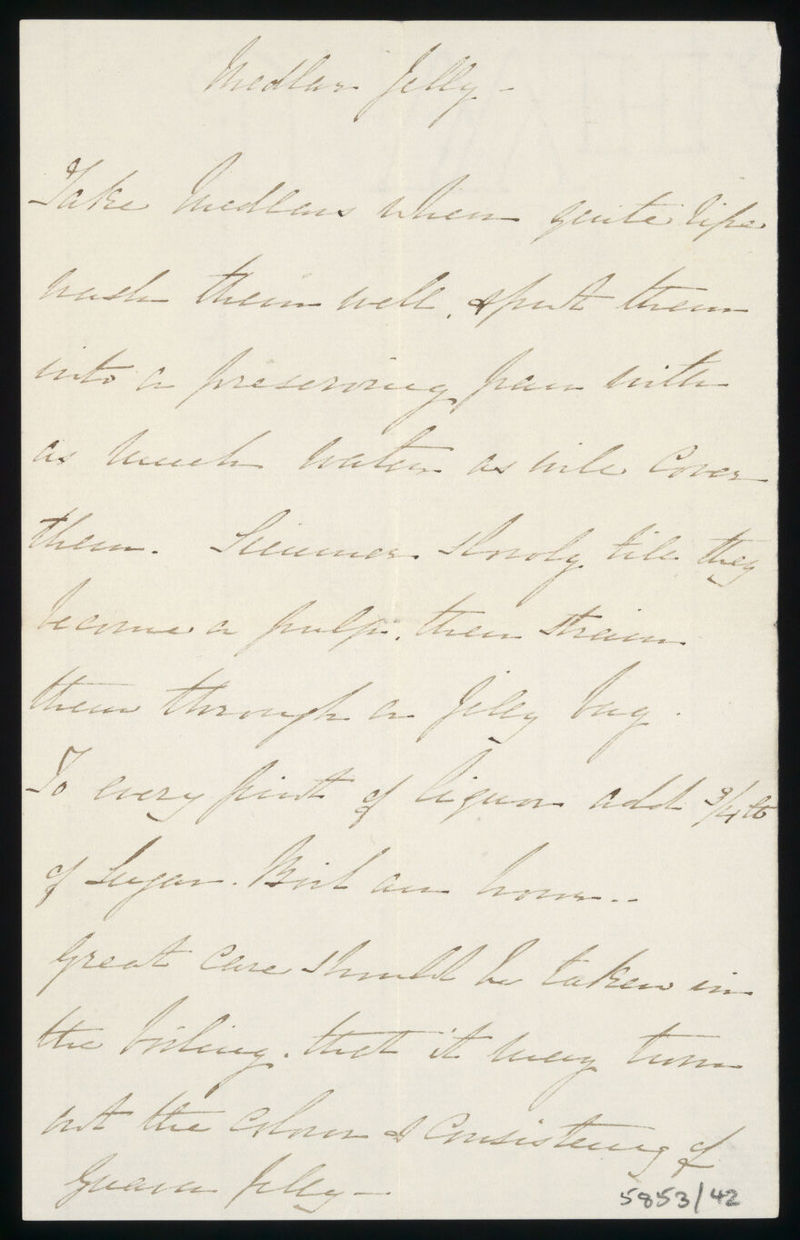 Medlar Jelly -
Take Medlars when quite ripe
wash them well, & put them
into a preserving pan with
as much water as will cover
them. Simmer slowly till they
become a pulp. then strain
them through a Jelly bag.
To every pint of liquor add 3/4 lb
of Sugar. Boil an hour..
Great care should be taken in
the boiling. that it may turn
out the colour & consistency of
Guava Jelly -
5853/42